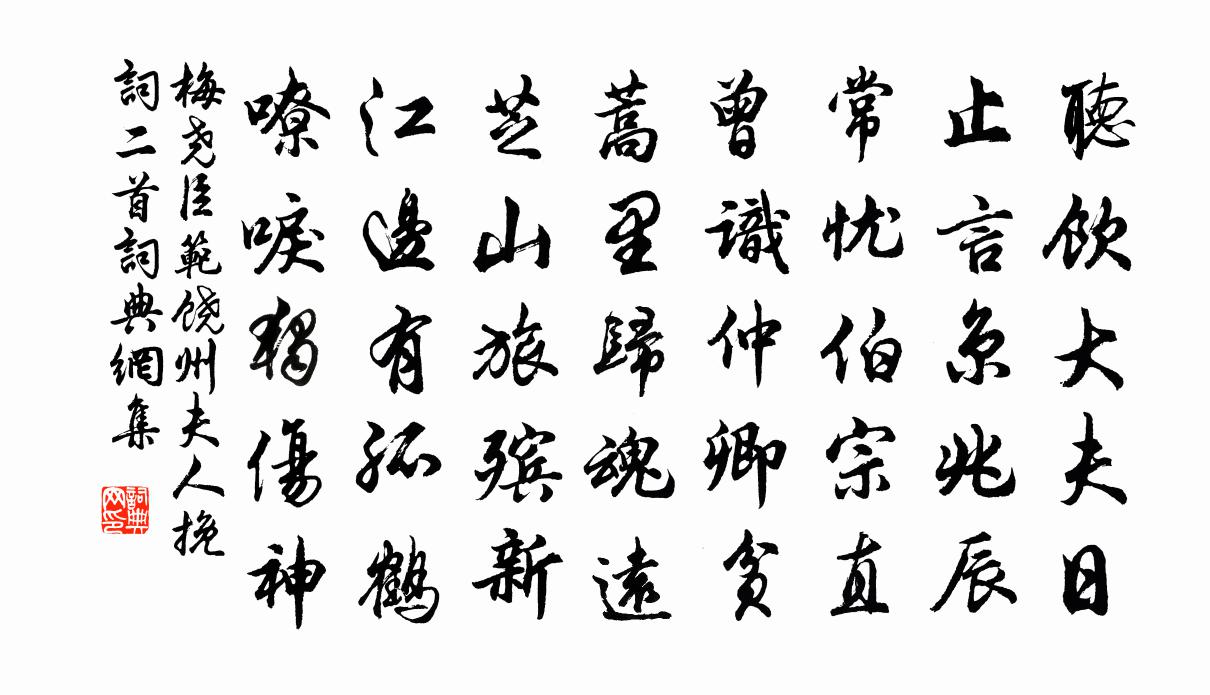 聽飲大夫日
止言京兆辰
常忧伯宗直
曾識仲卿貧
蒿里歸魂遠
芝山旅殯新
江邊有孤鶴
嘹唳獨傷神
梅尧臣範饶州夫人挽
詞二首詞典網集
詞典网印